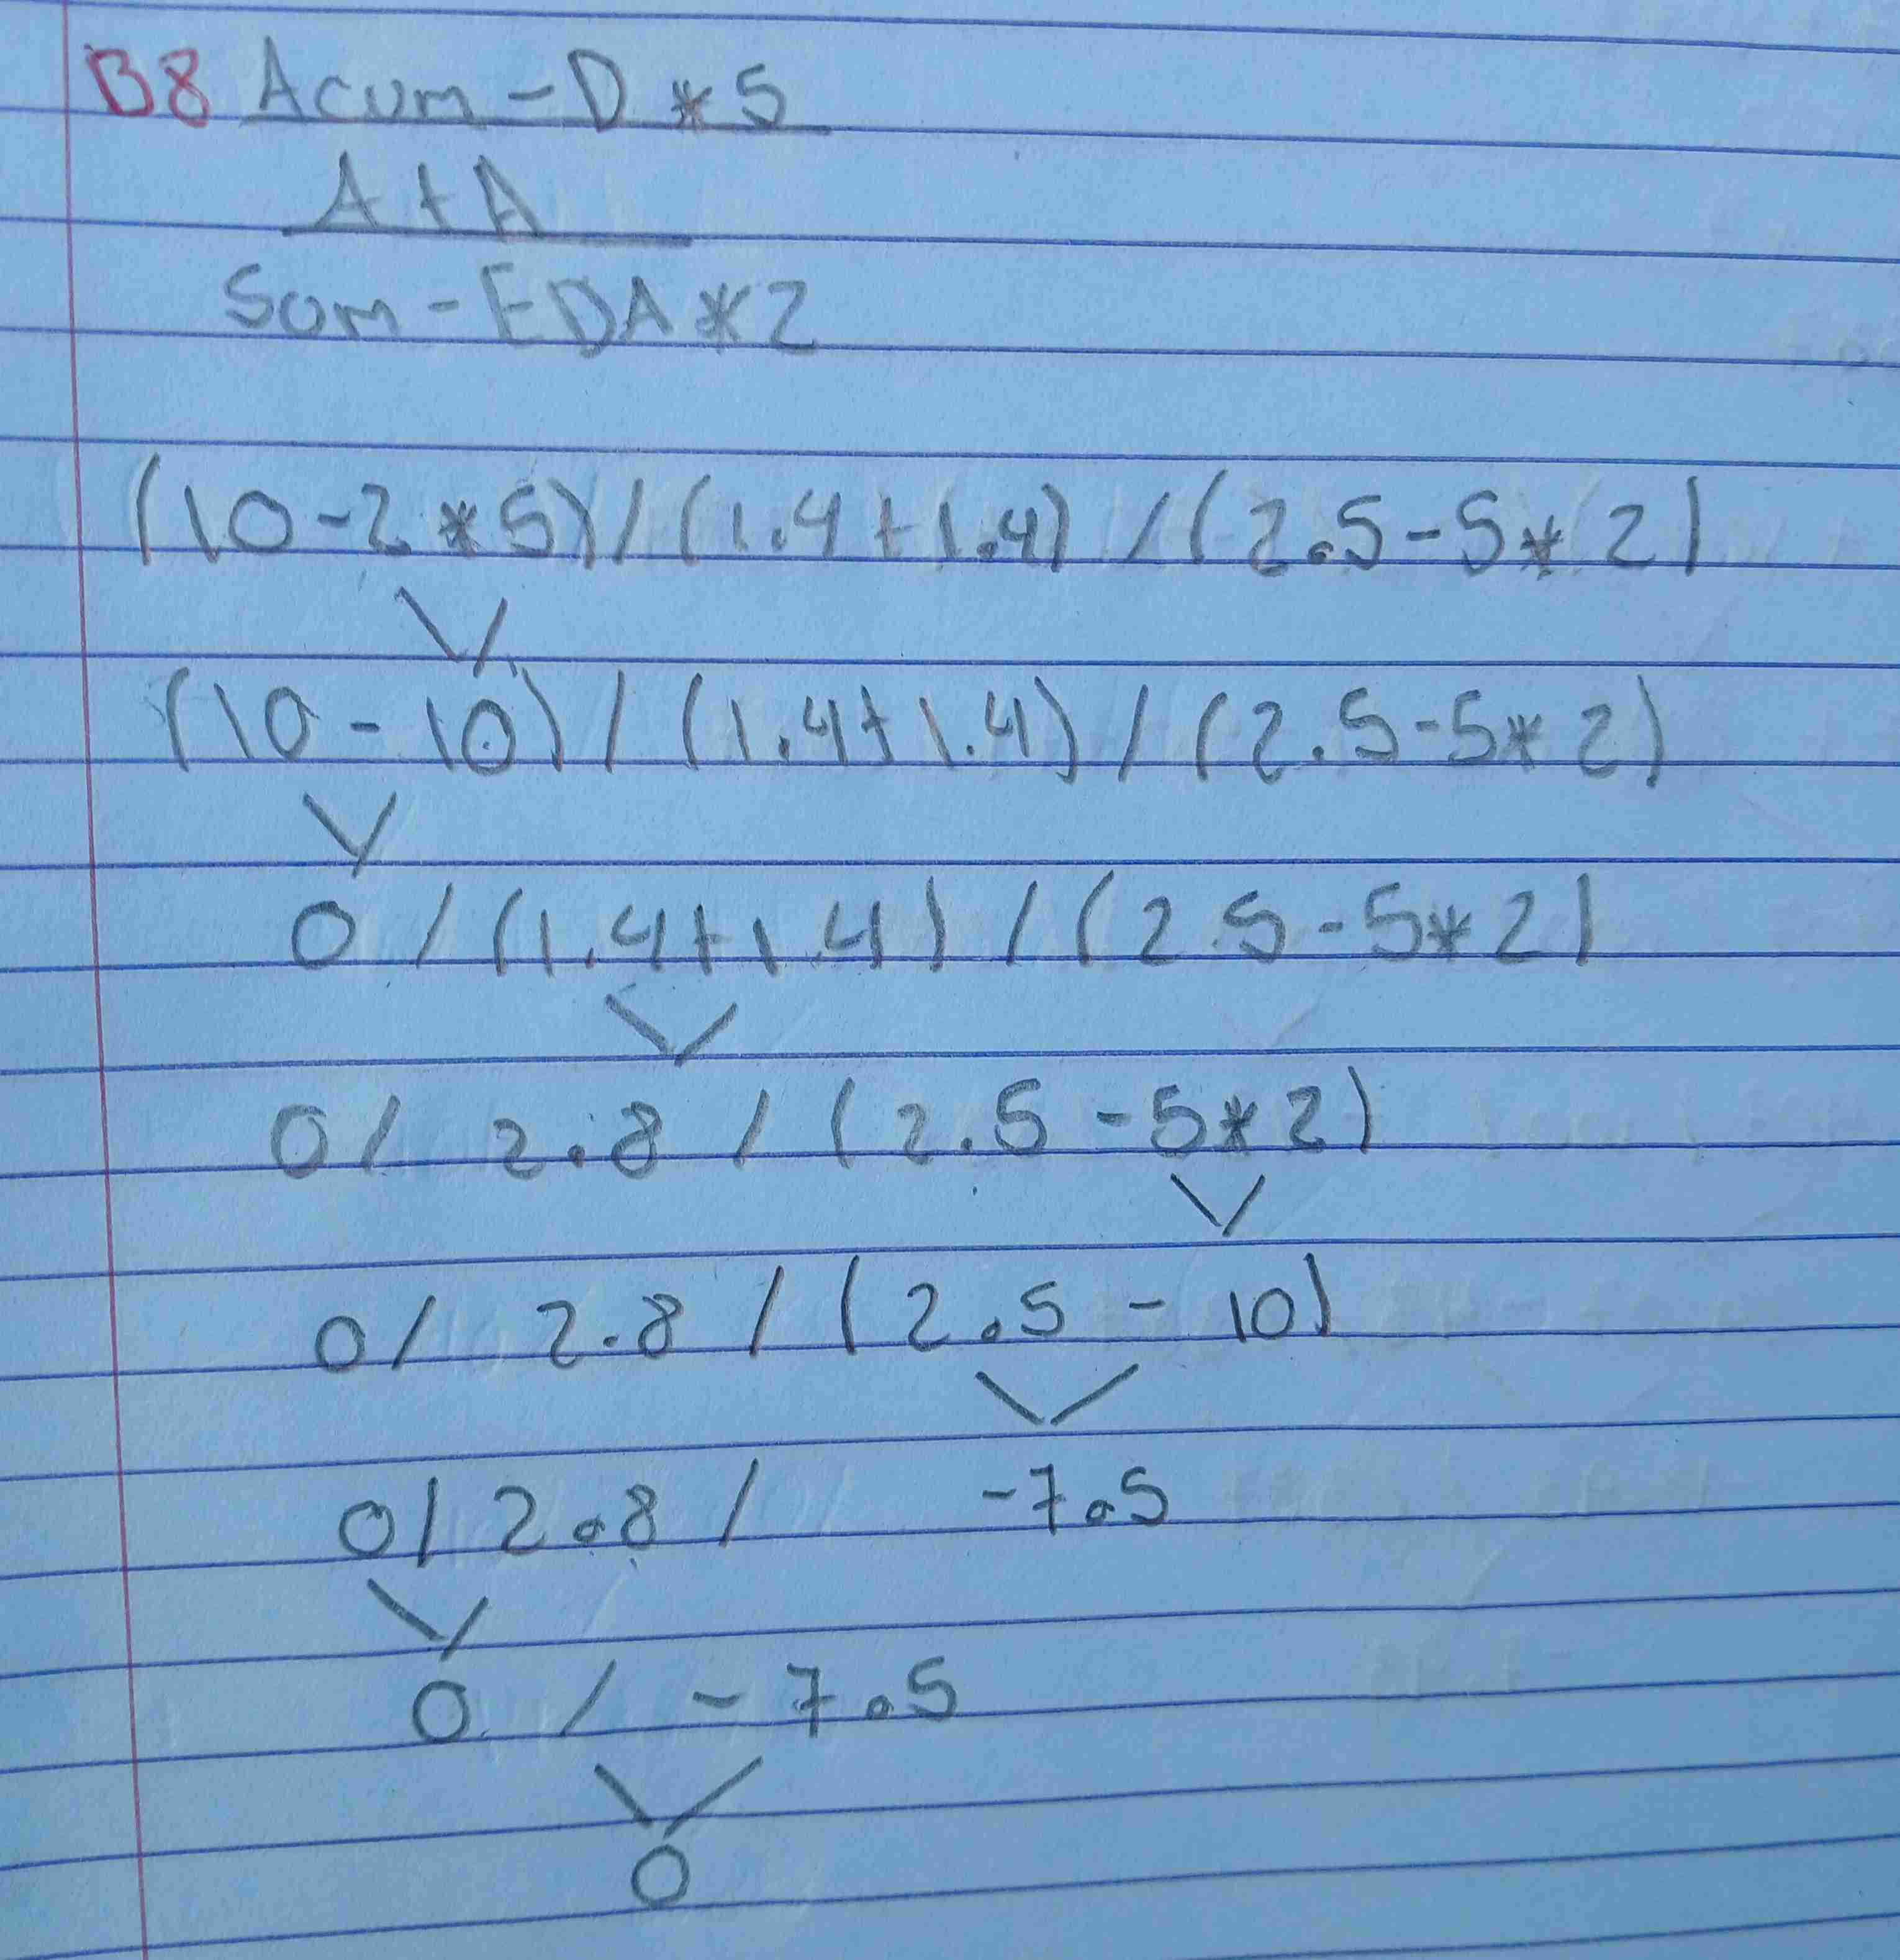 B8 Acum - D * 5
A + A
Sum - EDA * 2
(10 - 2 * 5) / (1.4 + 1.4) / (2.5 - 5 * 2)
(10 - 10) / (1.4 + 1.4) / (2.5 - 5 * 2)
0 / (1.4 + 1.4) / (2.5 - 5 * 2)
0 / 2.8 / (2.5 - 5 * 2)
0 / 2.8 / (2.5 - 10)
0 / 2.8 / -7.5
0 / -7.5
0